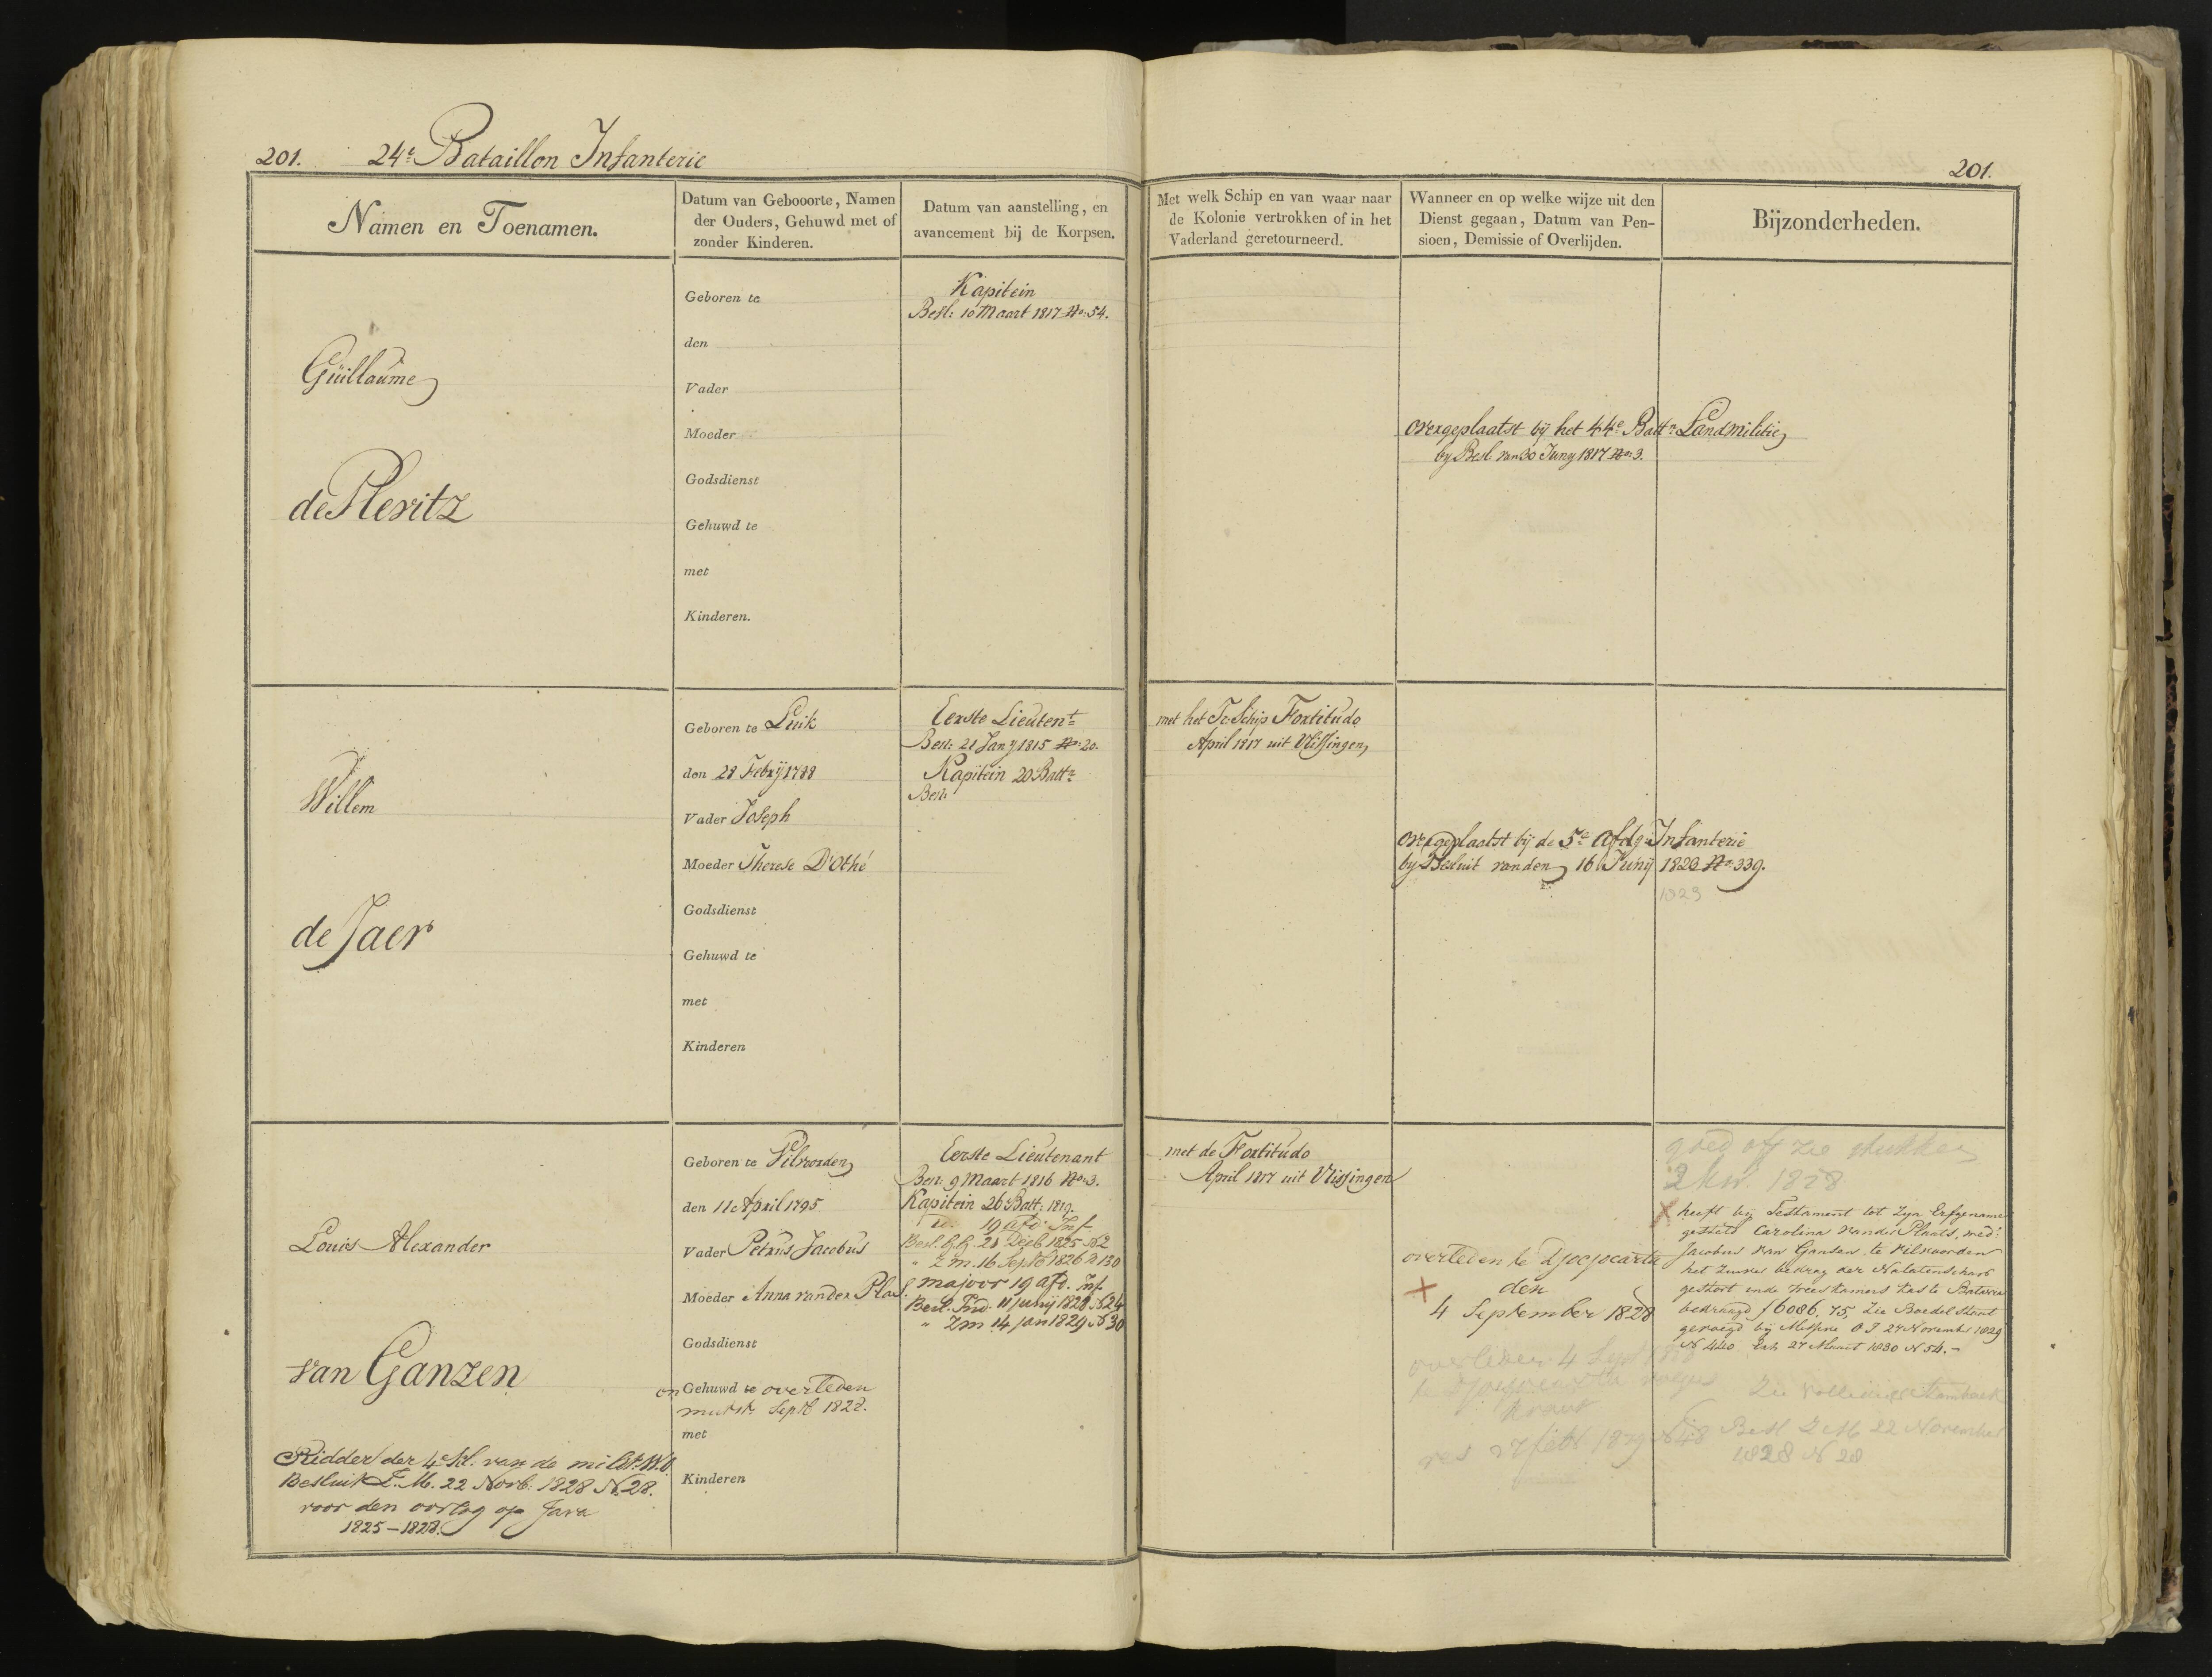 201. 24e Bataillon Infanterie
201.
Namen en Toenamen.
Datum van Gebooorte, Namen
der Ouders, Gehuwd met of
zonder Kinderen.
Datum van aanstelling, en
avancement bij de Korpsen.
Met welk Schip en van waar naar
de Kolonie vertrokken of in het
Vaderland geretourneerd.
Wanneer en op welke wijze uit den
Dienst gegaan, Datum van Pen-
sioen, Demissie of Overlijden.
Bijzonderheden.
Guillaume
de Plevitz
Geboren te
den
Vader
Moeder
Godsdienst
Gehuwd te
met
Kinderen.
Kapitein
Besl: 10 Maart 1817 No: 54.
overgeplaatst bij het 44e Battn Landmilitie
by Besl. van 30 Juny 1817 No: 3.
Willem
de Jaer
Geboren te Luik
den 28 Febrij 1788
Vader Joseph
Moeder Therese D'Othé
Godsdienst
Gehuwd te
met
Kinderen
Eerste Lieutent
Besl: 21 Jany 1815 No: 20.
Kapitein 20 Battn
Besl:
met het Tr. Schip Fortitudo
April 1817 uit Vlissingen
overgeplaatst bij de 5e Afdg Infanterie
by Besluit van den 16 Junij 1820 No: 339.
1823
Louis Alexander
van Ganzen
Ridder der 4e Kl. van de milte W.O.
Besluit Z.M. 22 Novb: 1828 N. 28.
voor den oorlog op Java
1825-1828.
Geboren te Vilvoorden
den 11 April 1795
Vader Petrus Jacobus
Moeder Anna van der Plas
Godsdienst
Gehuwd te overleden
Septb 1828.
met
Kinderen
Eerste Lieutenant
Besl: 9 Maart 1816 No: 3.
Kapitein 26 Batt: 1819.
19 afd: Inf
Besl. G.G. 21 Decb 1825 N 2
" Z.M. 16 Septb 1826 N 130
majoor 19 afd. Inf
Besl. Ind. 11 junij 1828 N 24
" Zm 14 jan 1829 N 30
met de Fortitudo
April 1817 uit Vlissingen
overleden te Djocjocarta
den
4 September 1828
overleden 4 Sept 1828
res 27 feb 1829 N 48
goed off zie stukken
1828
heeft bij Testament tot zyn Erfgename
gesteld Carolina van der Plaats, wed:
Jacobus van Gansen, te Vilvoorden
het zuiver bedrag der Nalatenschap
gestort in de Weeskamers kas te Batavia
bedraagd f 6086,75, zie Boedel Staat
gevoegd bij Missive O I 27 November 1829
N 440 Exh 27 Maart 1830 N 54.-
Zie volledige Stamboek
Besl Z.M. 22 November
1828 N 28